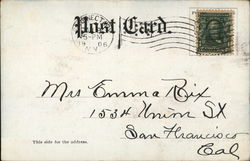 Post Card.
5-PM
06
N.Y.
Mrs Emma Rix
1534 Union St
San Francisco
Cal
This side for the address.